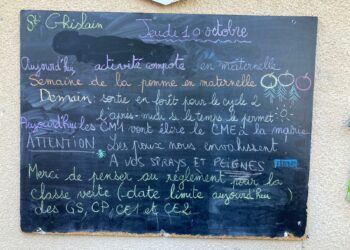 St Ghislain
Jeudi 10 octobre
Aujourd'hui activité compote en maternelle
Semaine de la pomme en maternelle
Demain : sortie en forêt pour le cycle 2
l'après-midi si le temps le permet
Aujourd'hui les CM1 vont élire le CME à la mairie
ATTENTION Les poux nous envahissent
A VOS SPRAYS ET PEIGNES
Merci de penser au règlement pour la
classe verte (date limite aujourd'hui)
des GS, CP, CE1 et CE2